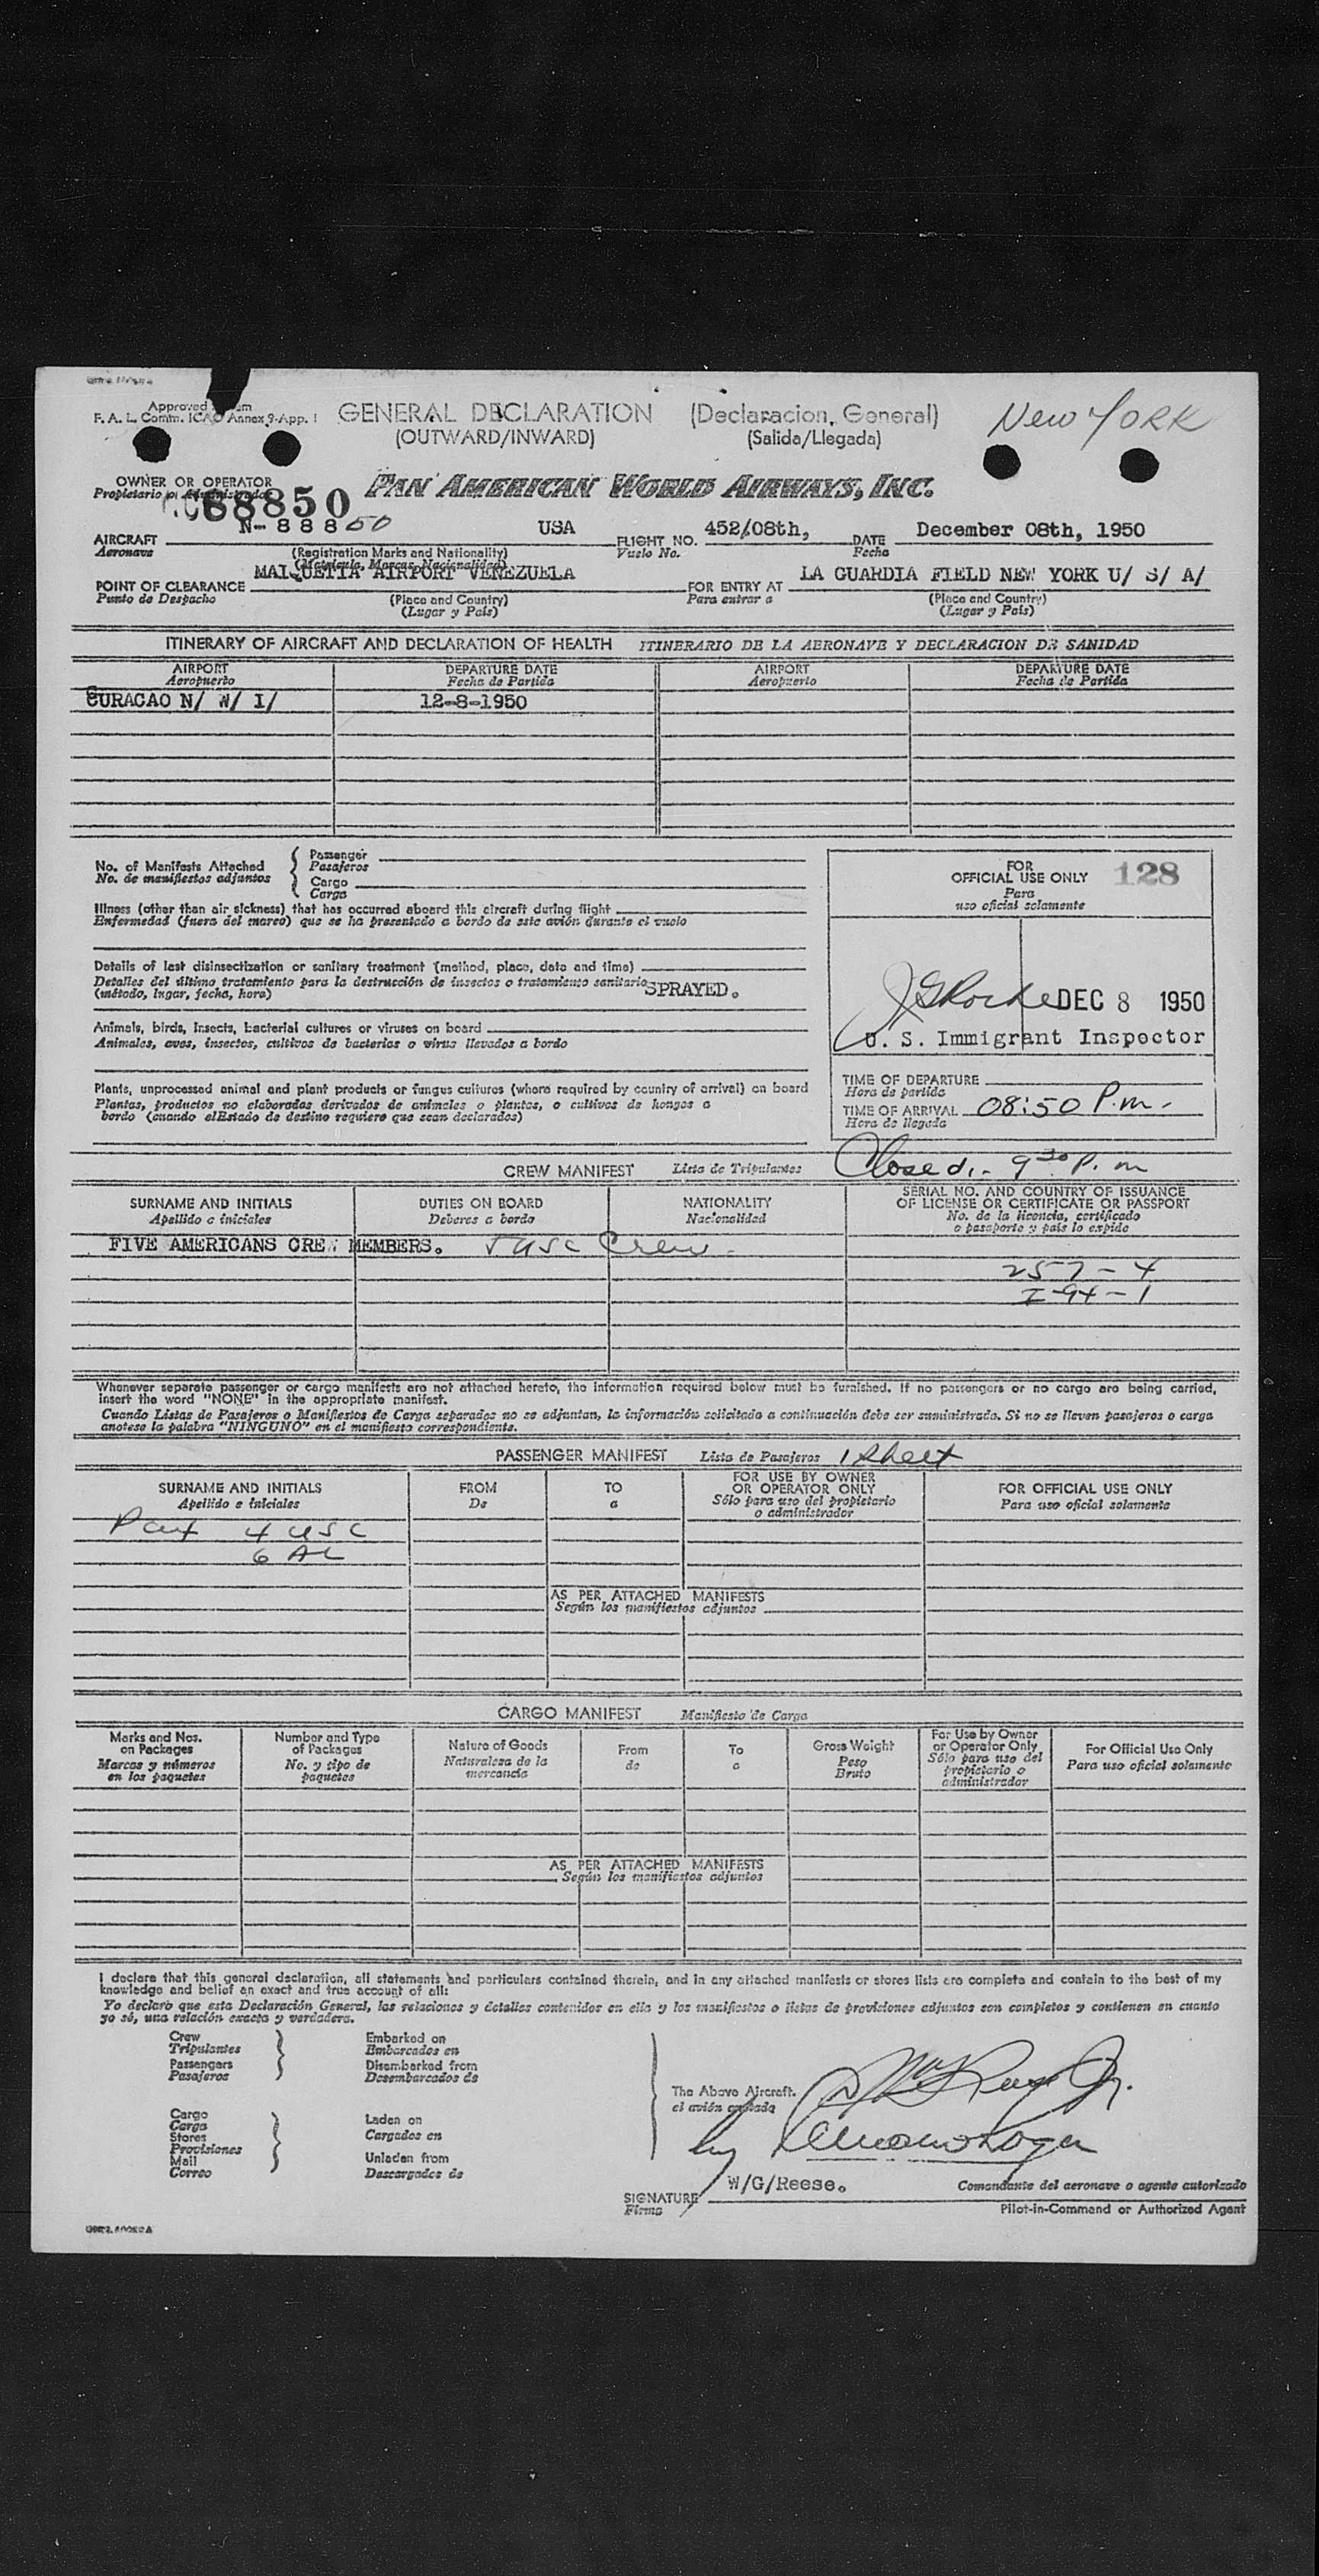 Approved
F. A. L. Comm. ICAO Annex 9-App. 1
GENERAL DECLARATION (Declaracion, General)
(OUTWARD/INWARD) (Salida/Llegada)
New York
OWNER OR OPERATOR
Propietario o Administrador
PAN AMERICAN WORLD AIRWAYS, INC.
88850
AIRCRAFT N-88850 USA FLIGHT NO. 452/08th, DATE December 08th, 1950
Aeronave (Registration Marks and Nationality) Vuelo No. Fecha
(Matricula, Marcas, Nacionalidad)
POINT OF CLEARANCE MAIQUETIA AIRPORT VENEZUELA FOR ENTRY AT LA GUARDIA FIELD NEW YORK U/ S/ A/
Punto de Despacho (Place and Country) Para entrar a (Place and Country)
(Lugar y País) (Lugar y País)
ITINERARY OF AIRCRAFT AND DECLARATION OF HEALTH ITINERARIO DE LA AERONAVE Y DECLARACION DE SANIDAD
AIRPORT DEPARTURE DATE AIRPORT DEPARTURE DATE
Aeropuerto Fecha de Partida Aeropuerto Fecha de Partida
CURACAO N/ W/ I/ 12-8-1950
No. of Manifests Attached
No. de manifiestos adjuntos
Passenger
Pasajeros
Cargo
Carga
Illness (other than air sickness) that has occurred aboard this aircraft during flight
Enfermedad (fuera del mareo) que se ha presentado a bordo de este avión durante el vuelo
Details of last disinsectization or sanitary treatment (method, place, date and time)
Detalles del último tratamiento para la destrucción de insectos o tratamiento sanitario SPRAYED.
(método, lugar, fecha, hora)
Animals, birds, insects, bacterial cultures or viruses on board
Animales, aves, insectos, cultivos de bacterias o virus llevados a bordo
Plants, unprocessed animal and plant products or fungus cultures (where required by country of arrival) on board
Plantas, productos no elaborados derivados de animales o plantas, o cultivos de hongos a
bordo (cuando el Estado de destino requiere que sean declarados)
FOR
OFFICIAL USE ONLY 128
Para
uso oficial solamente
DEC 8 1950
U. S. Immigrant Inspector
TIME OF DEPARTURE
Hora de partida
TIME OF ARRIVAL 08:50 P.m.
Hora de llegada
Closed - 9 30 P. m
CREW MANIFEST Lista de Tripulantes
SURNAME AND INITIALS DUTIES ON BOARD NATIONALITY SERIAL NO. AND COUNTRY OF ISSUANCE
OF LICENSE OR CERTIFICATE OR PASSPORT
Apellido e iniciales Deberes a bordo Nacionalidad No. de la licencia, certificado
o pasaporte y país lo expide
FIVE AMERICANS CREW MEMBERS. 5 usc Crew
257-4
I-94-1
Whenever separate passenger or cargo manifests are not attached hereto, the information required below must be furnished. If no passengers or no cargo are being carried,
insert the word "NONE" in the appropriate manifest.
Cuando Listas de Pasajeros o Manifiestos de Carga separados no se adjuntan, la información solicitada a continuación debe ser suministrada. Si no se lleven pasajeros o carga
anotese la palabra "NINGUNO" en el manifiesto correspondiente.
PASSENGER MANIFEST Lista de Pasajeros 1 Sheet
SURNAME AND INITIALS FROM TO FOR USE BY OWNER
OR OPERATOR ONLY FOR OFFICIAL USE ONLY
Apellido e iniciales De a Sólo para uso del propietario
o administrador Para uso oficial solamente
Pax 4 USC
6 AL
AS PER ATTACHED MANIFESTS
Según los manifiestos adjuntos
CARGO MANIFEST Manifiesto de Carga
Marks and Nos.
on Packages
Marcas y números
en los paquetes
Number and Type
of Packages
No. y tipo de
paquetes
Nature of Goods
Naturaleza de la
mercancía
From
de
To
a
Gross Weight
Peso
Bruto
For Use by Owner
or Operator Only
Sólo para uso del
propietario o
administrador
For Official Use Only
Para uso oficial solamente
AS PER ATTACHED MANIFESTS
Según los manifiestos adjuntos
I declare that this general declaration, all statements and particulars contained therein, and in any attached manifests or stores lists are complete and contain to the best of my
knowledge and belief an exact and true account of all:
Yo declaro que esta Declaración General, las relaciones y detalles contenidos en ella y los manifiestos o listas de provisiones adjuntos son completos y contienen en cuanto
yo sé, una relación exacta y verdadera.
Crew
Tripulantes
Passengers
Pasajeros
Embarked on
Embarcados en
Disembarked from
Desembarcados de
Cargo
Carga
Stores
Provisiones
Mail
Correo
Laden on
Cargados en
Unladen from
Descargados de
The Above Aircraft.
el avión
by
W/G/Reese.
SIGNATURE
Firma
Comandante del aeronave o agente autorizado
Pilot-in-Command or Authorized Agent